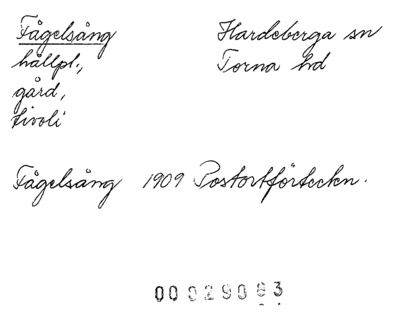 Fågelsång
hållpl.,
gård,
tivoli
Hardeberga sn
Torna hd
Fågelsång 1909 Postortförteckn.
00029083